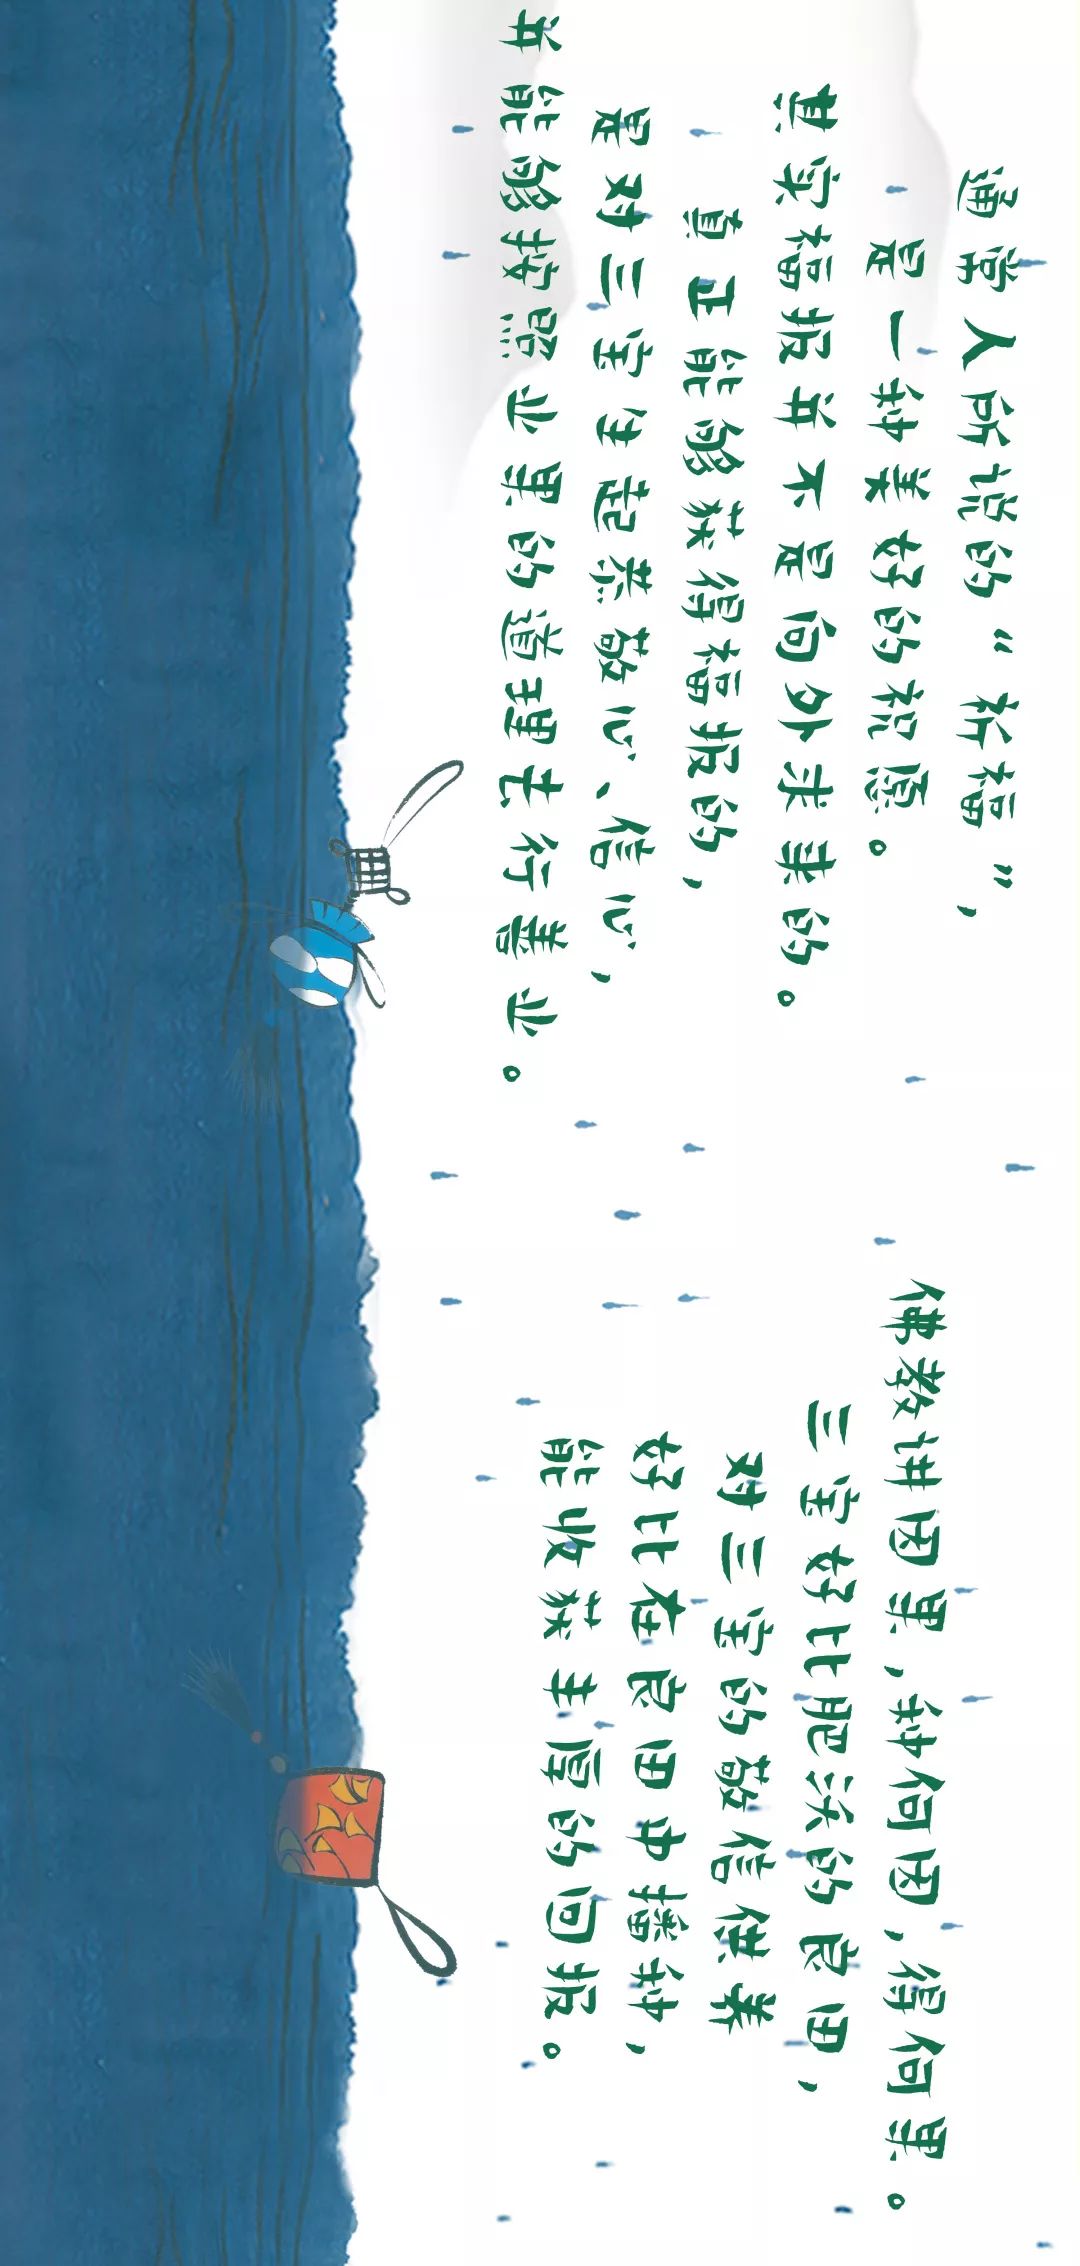 通常人所说的“祈福”，
是一种美好的祝愿。
其实福报并不是向外求来的。
真正能够获得福报的，
是对三宝生起恭敬心、信心，
并能够按照业果的道理去行善业。
佛教讲因果，种何因，得何果。
三宝好比肥沃的良田，
对三宝的敬信供养
好比在良田中播种，
能收获丰厚的回报。